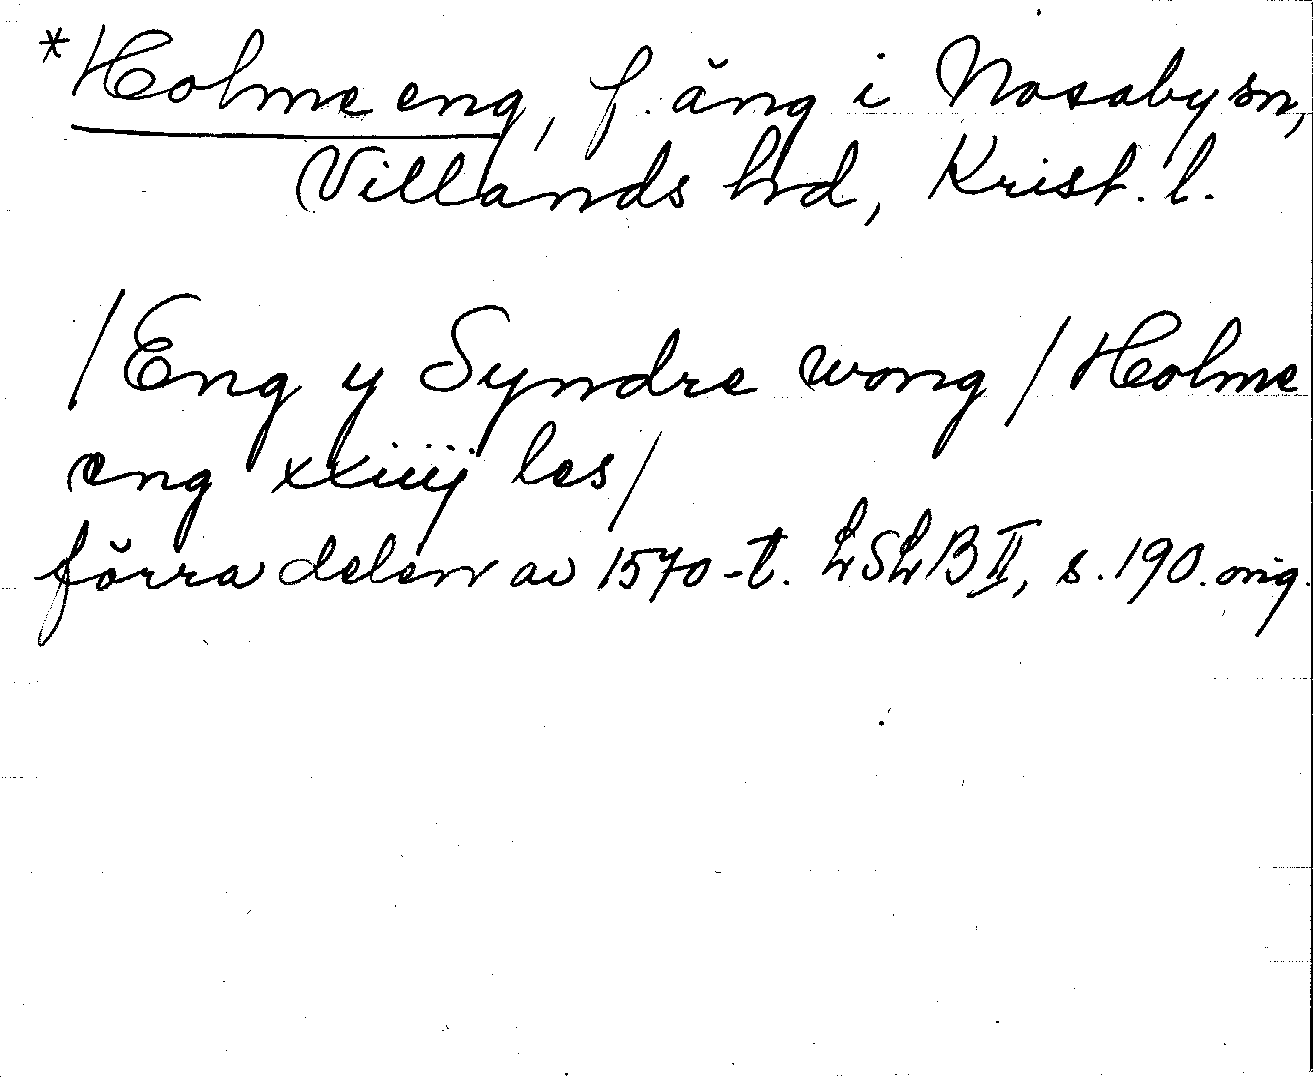 *Holme eng, f. äng i Nosaby sn,
Villands hd, Krist. l.
/Eng y Syndre wong / Holme
eng xxiiij les/
förra delen av 1570-t. LSLB II, s. 190. orig.